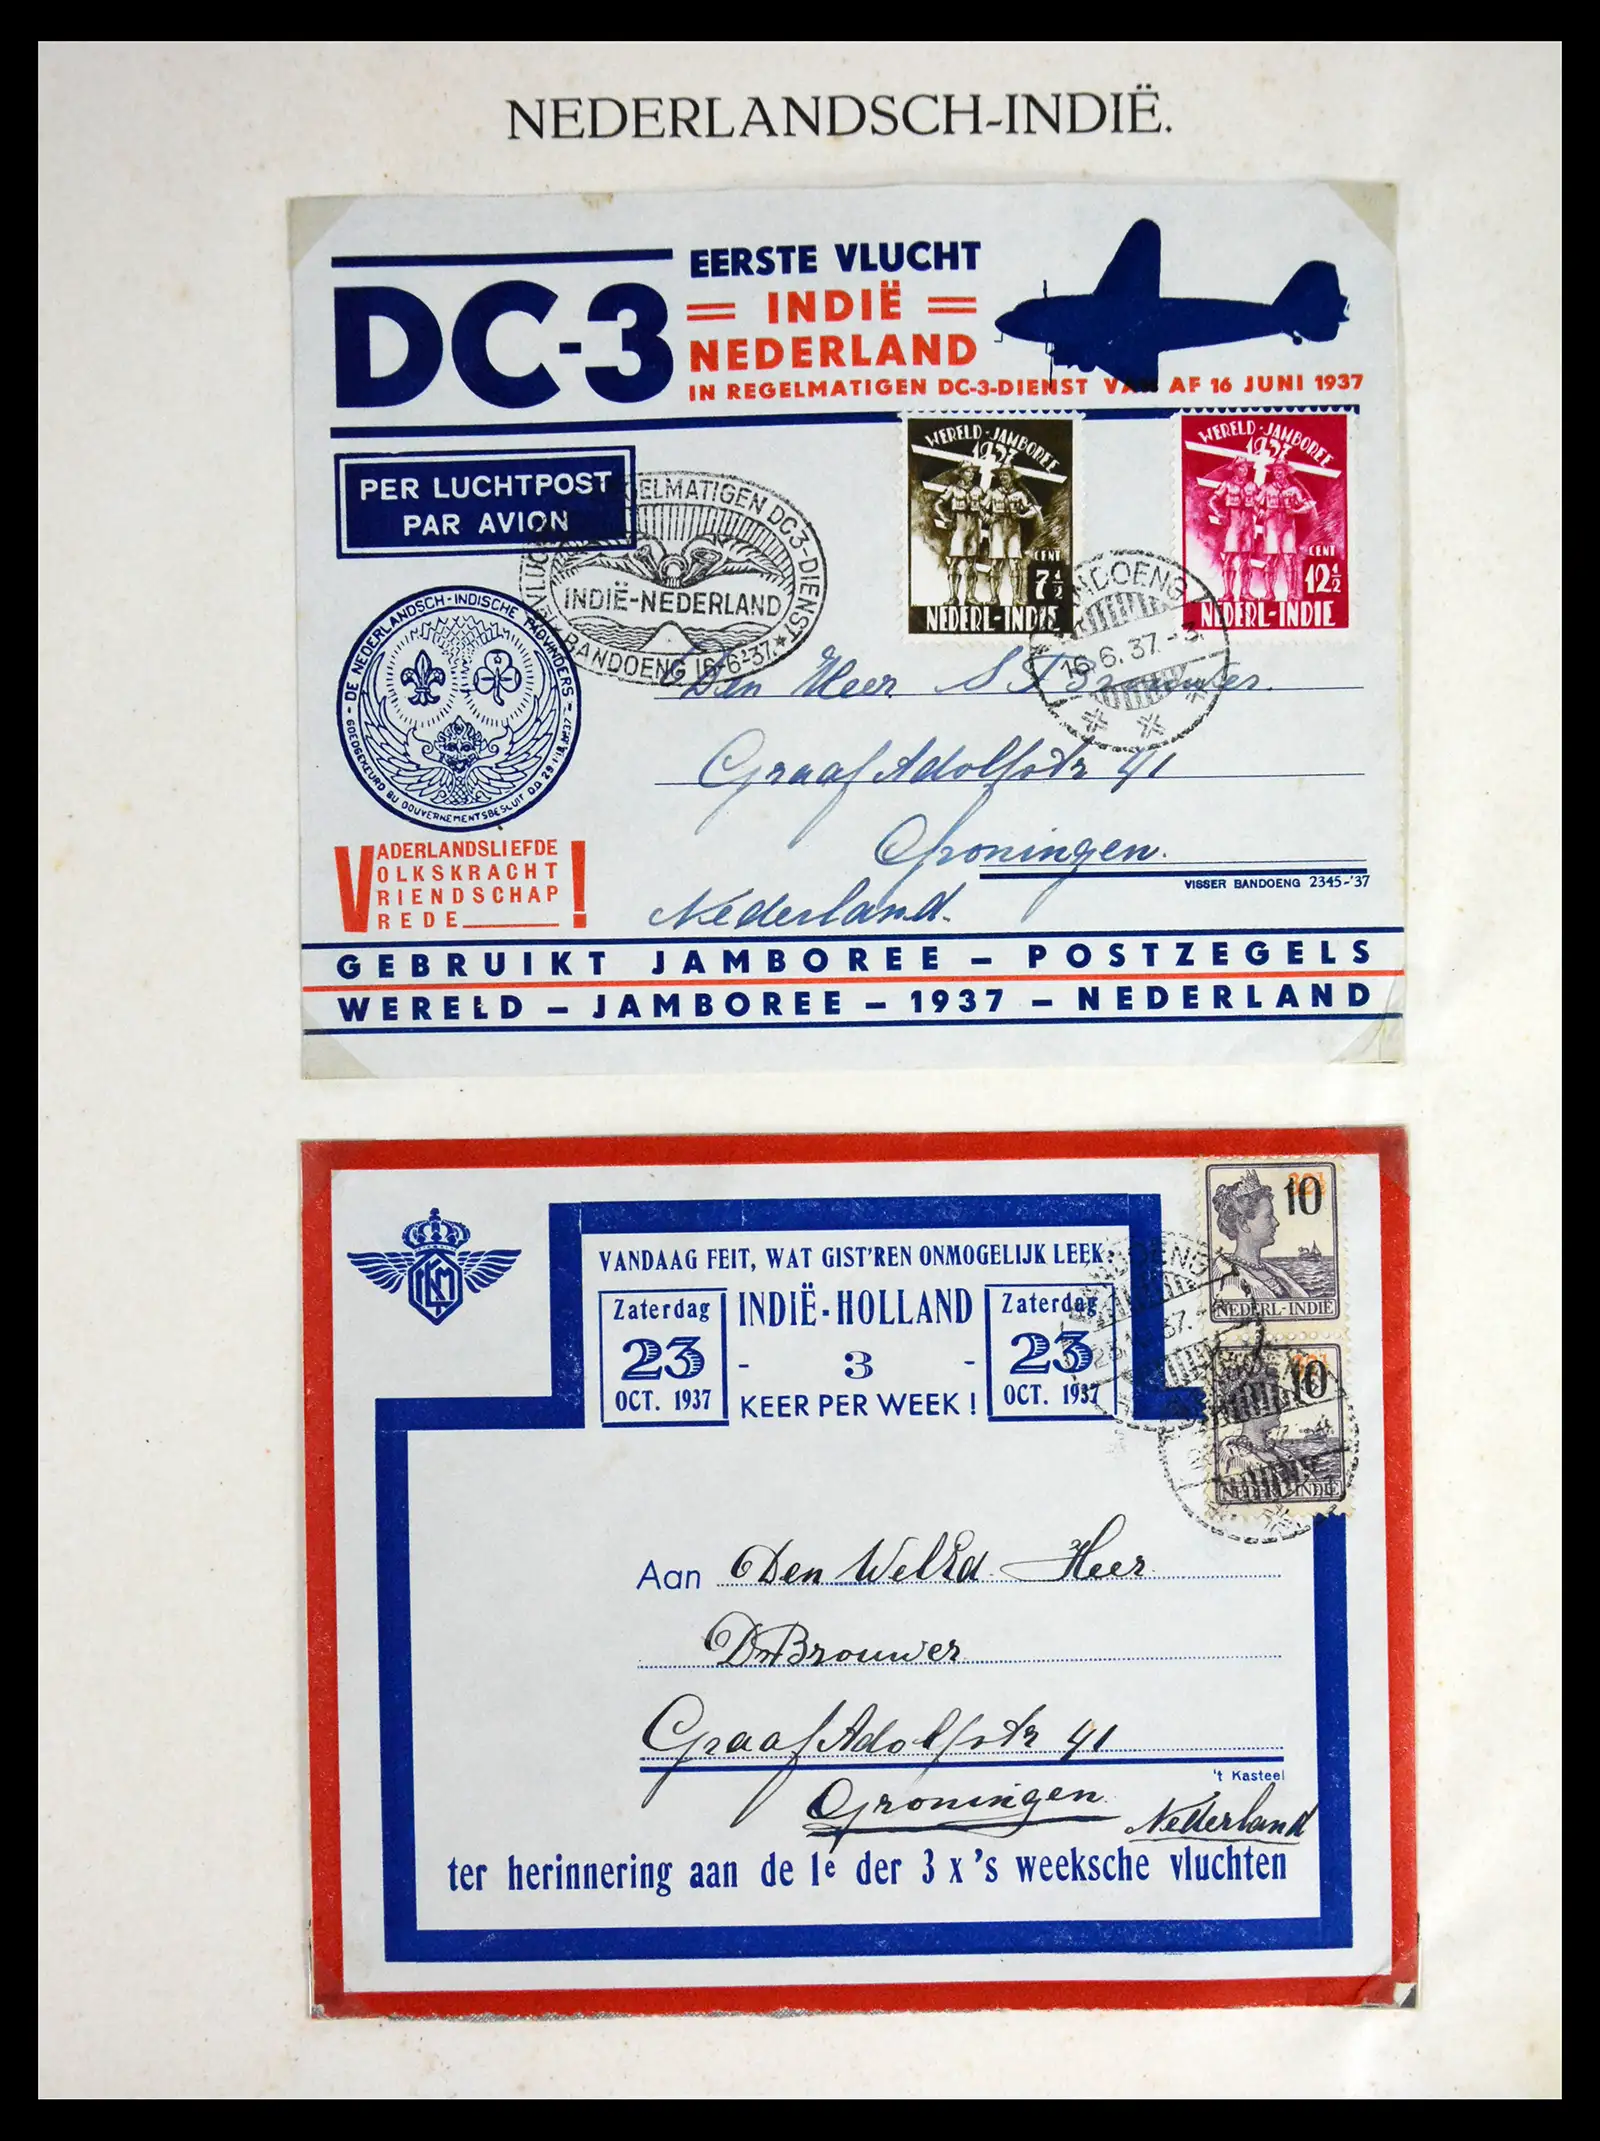 NEDERLANDSCH-INDIË.
DC-3
EERSTE VLUCHT
= INDIË =
NEDERLAND
IN REGELMATIGEN DC-3-DIENST VAN AF 16 JUNI 1937
PER LUCHTPOST
PAR AVION
REGELMATIGEN DC3-DIENST
INDIË-NEDERLAND
BANDOENG 16-6-37
WERELD-JAMBOREE
1937
CENT
7½
NEDERL-INDIE
WERELD-JAMBOREE
1937
CENT
12½
NEDERL-INDIE
BANDOENG
16.6.37.-3
- DE NEDERLANDSCH-INDISCHE PADVINDERS -
GOEDGEKEURD BIJ GOUVERNEMENTSBESLUIT D.D. 29-1-
Den Heer S
Graaf Adolfstr 41
Groningen.
Nederland.
VISSER BANDOENG 2345-'37
VADERLANDSLIEFDE
VOLKSKRACHT
VRIENDSCHAP
VREDE !
GEBRUIKT JAMBOREE - POSTZEGELS
WERELD - JAMBOREE - 1937 - NEDERLAND
KLM
VANDAAG FEIT, WAT GIST'REN ONMOGELIJK LEEK:
Zaterdag
23
OCT. 1937
INDIË-HOLLAND
- 3 -
KEER PER WEEK!
Zaterdag
23
OCT. 1937
10
NEDERL-INDIË
10
NEDERL-INDIË
Aan Den WelEd. Heer
Dr Brouwer
Graaf Adolfstr 41
't Kasteel
Groningen.
Nederland
ter herinnering aan de 1e der 3 x 's weeksche vluchten